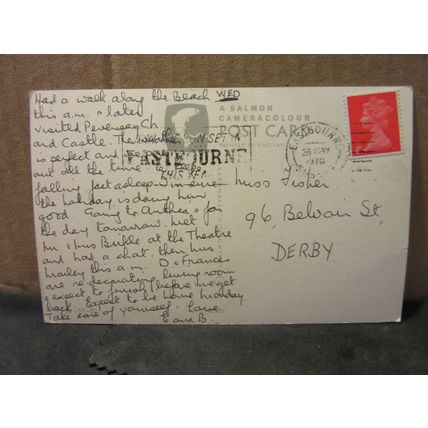 Had a walk along the Beach WED
this a.m. & later
visited Pevensey Ch
and Castle. The weather
is perfect and
out all the time
falling fast asleep
the holiday is doing him
good. Going to Anthea's for
the day tomorrow. Met
Mr & Mrs at the Theatre
and had a chat. then Mrs
this a.m. D & Frances
are re-decorating living room
& expect to finish before we get
back. Expect to be home Monday.
Take care of yourself. Love
E and B.
A SALMON
CAMERACOLOUR
POST CARD
PRINTED IN ENGLAND
SUNSET IN
EASTBOURNE
THIS YEAR
EASTBOURNE
1970
Miss Fisher
96, Belvoir St
DERBY